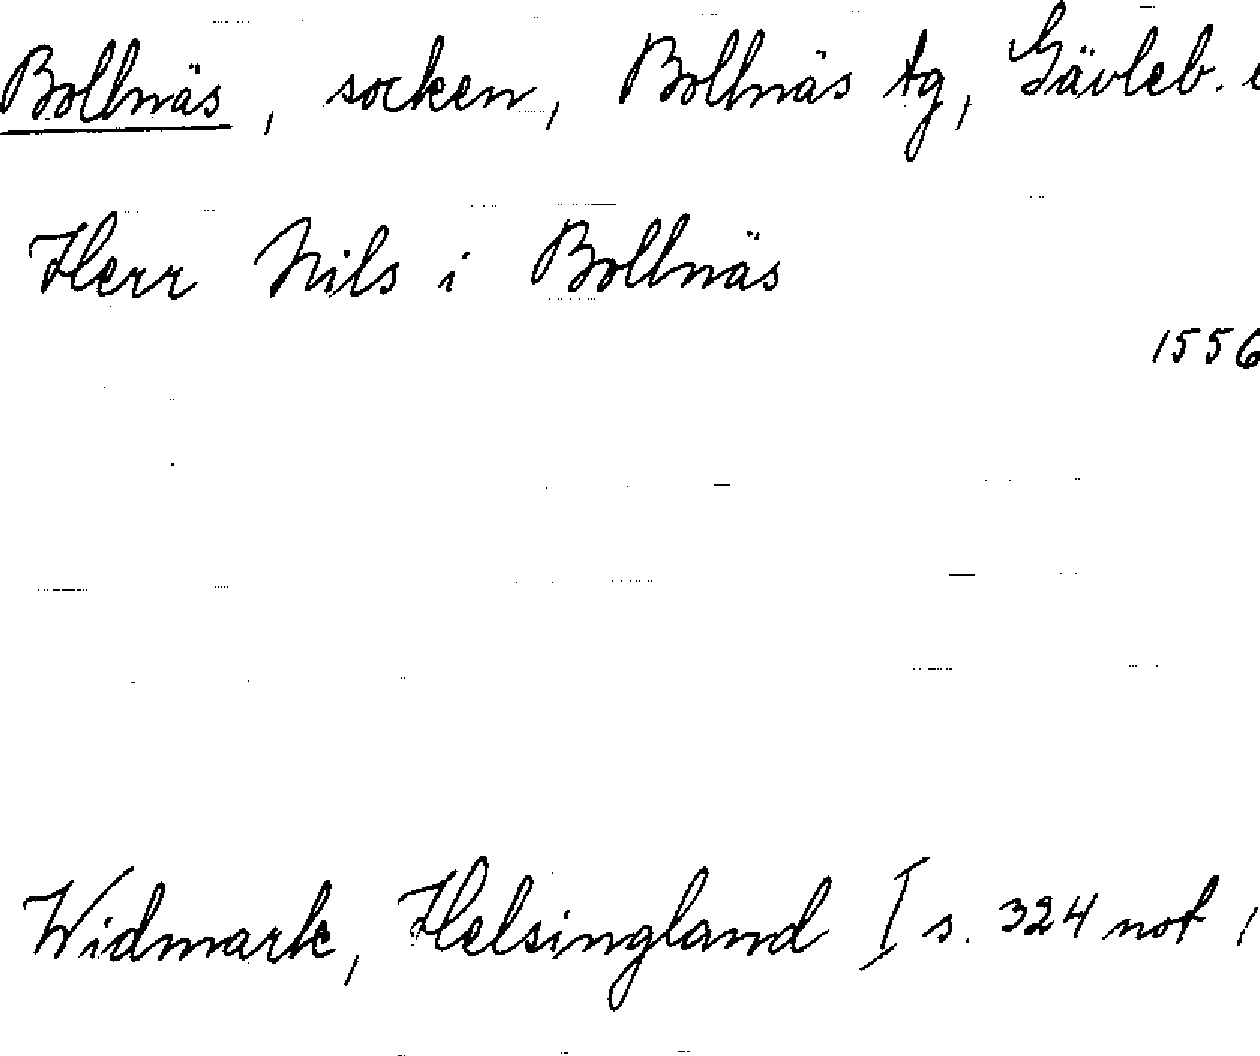 Bollnäs, socken, Bollnäs tg, Gävleb.
Herr Nils i Bollnäs
1556
Widmark, Helsingland I s. 324 not 1